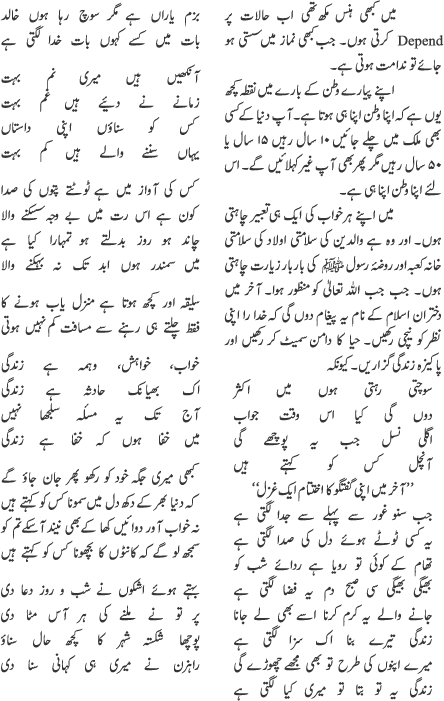 میں کبھی ہنس مکھ تھی اب حالات پر
Depend کرتی ہوں۔ جب کبھی نماز میں سستی ہو
جائے تو ندامت ہوتی ہے۔
اپنے پیارے وطن کے بارے میں نقطہ کچھ
یوں ہے کہ اپنا وطن اپنا ہی ہوتا ہے۔ آپ دنیا کے کسی
بھی ملک میں چلے جائیں ۱۰ سال رہیں ۱۵ سال یا
۵۰ سال رہیں مگر پھر بھی آپ غیر کہلائیں گے۔ اس
لئے اپنا وطن اپنا ہی ہے۔
میں اپنے ہر خواب کی ایک ہی تعبیر چاہتی
ہوں۔ اور وہ ہے والدین کی سلامتی اولاد کی سلامتی
خانہ کعبہ اور روضۂ رسول ﷺ کی بار بار زیارت چاہتی
ہوں۔ جب جب اللہ تعالیٰ کو منظور ہوا۔ آخر میں
دختران اسلام کے نام یہ پیغام دوں گی کہ خدا را اپنی
نظر کو نیچی رکھیں۔ حیا کا دامن سمیٹ کر رکھیں اور
پاکیزہ زندگی گزاریں۔ کیونکہ
سوچتی رہتی ہوں میں اکثر
دوں گی کیا اس وقت جواب
اگلی نسل جب یہ پوچھے گی
آنچل کس کو کہتے ہیں
”آخر میں اپنی گفتگو کا اختتام ایک غزل“
جب سنو غور سے پہلے سے جدا لگتی ہے
یہ کسی ٹوٹے ہوئے دل کی صدا لگتی ہے
تھام کے کوئی تو رویا ہے ردائے شب کو
بھیگی بھیگی سی صبح دم یہ فضا لگتی ہے
جانے والے یہ کرم کرنا اسے بھی لے جانا
زندگی تیرے بنا اک سزا لگتی ہے
میرے اپنوں کی طرح تو بھی مجھے چھوڑے گی
زندگی یہ تو بتا تو میری کیا لگتی ہے
بزم یاراں ہے مگر سوچ رہا ہوں خالد
بات میں کسے کہوں بات خدا لگتی ہے
آنکھیں ہیں میری نم بہت
زمانے نے دئیے ہیں غم بہت
کس کو سناؤں اپنی داستاں
یہاں سننے والے ہیں کم بہت
کس کی آواز میں ہے ٹوٹتے پتوں کی صدا
کون ہے اس رت میں بے وجہ سسکنے والا
چاند ہو روز بدلتے ہو تمہارا کیا ہے
میں سمندر ہوں ابد تک نہ بہکنے والا
سلیقہ اور کچھ ہوتا ہے منزل یاب ہونے کا
فقط چلتے ہی رہنے سے مسافت کم نہیں ہوتی
خواب، خواہش، وہمہ ہے زندگی
اک بھیانک حادثہ ہے زندگی
آج تک یہ مسئلہ سلجھا نہیں
میں خفا ہوں کہ خفا ہے زندگی
کبھی میری جگہ خود کو رکھو پھر جان جاؤ گے
کہ دنیا بھر کے دکھ دل میں سمونا کس کو کہتے ہیں
نہ خواب آور دوائیں کھا کے بھی نیند آسکے تم کو
سمجھ لو گے کہ کانٹوں کا بچھونا کس کو کہتے ہیں
بہتے ہوئے اشکوں نے شب و روز دعا دی
پر تو نے ملنے کی ہر آس مٹا دی
پوچھا شکستہ شہر کا کچھ حال سناؤ
راہزن نے میری ہی کہانی سنا دی